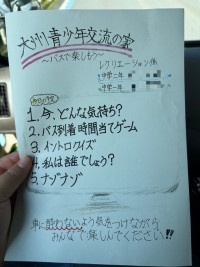 大洲青少年交流の家
〜バスで楽しもう〜
レクリエーション係
中学二年
中学一年
今日の予定
1. 今、どんな気持ち?
2. バス到着時間当てゲーム
3. イントロクイズ
4. 私は誰でしょう?
5. ナゾナゾ
車に酔わないよう気をつけながら
みんなで楽しんでください!!